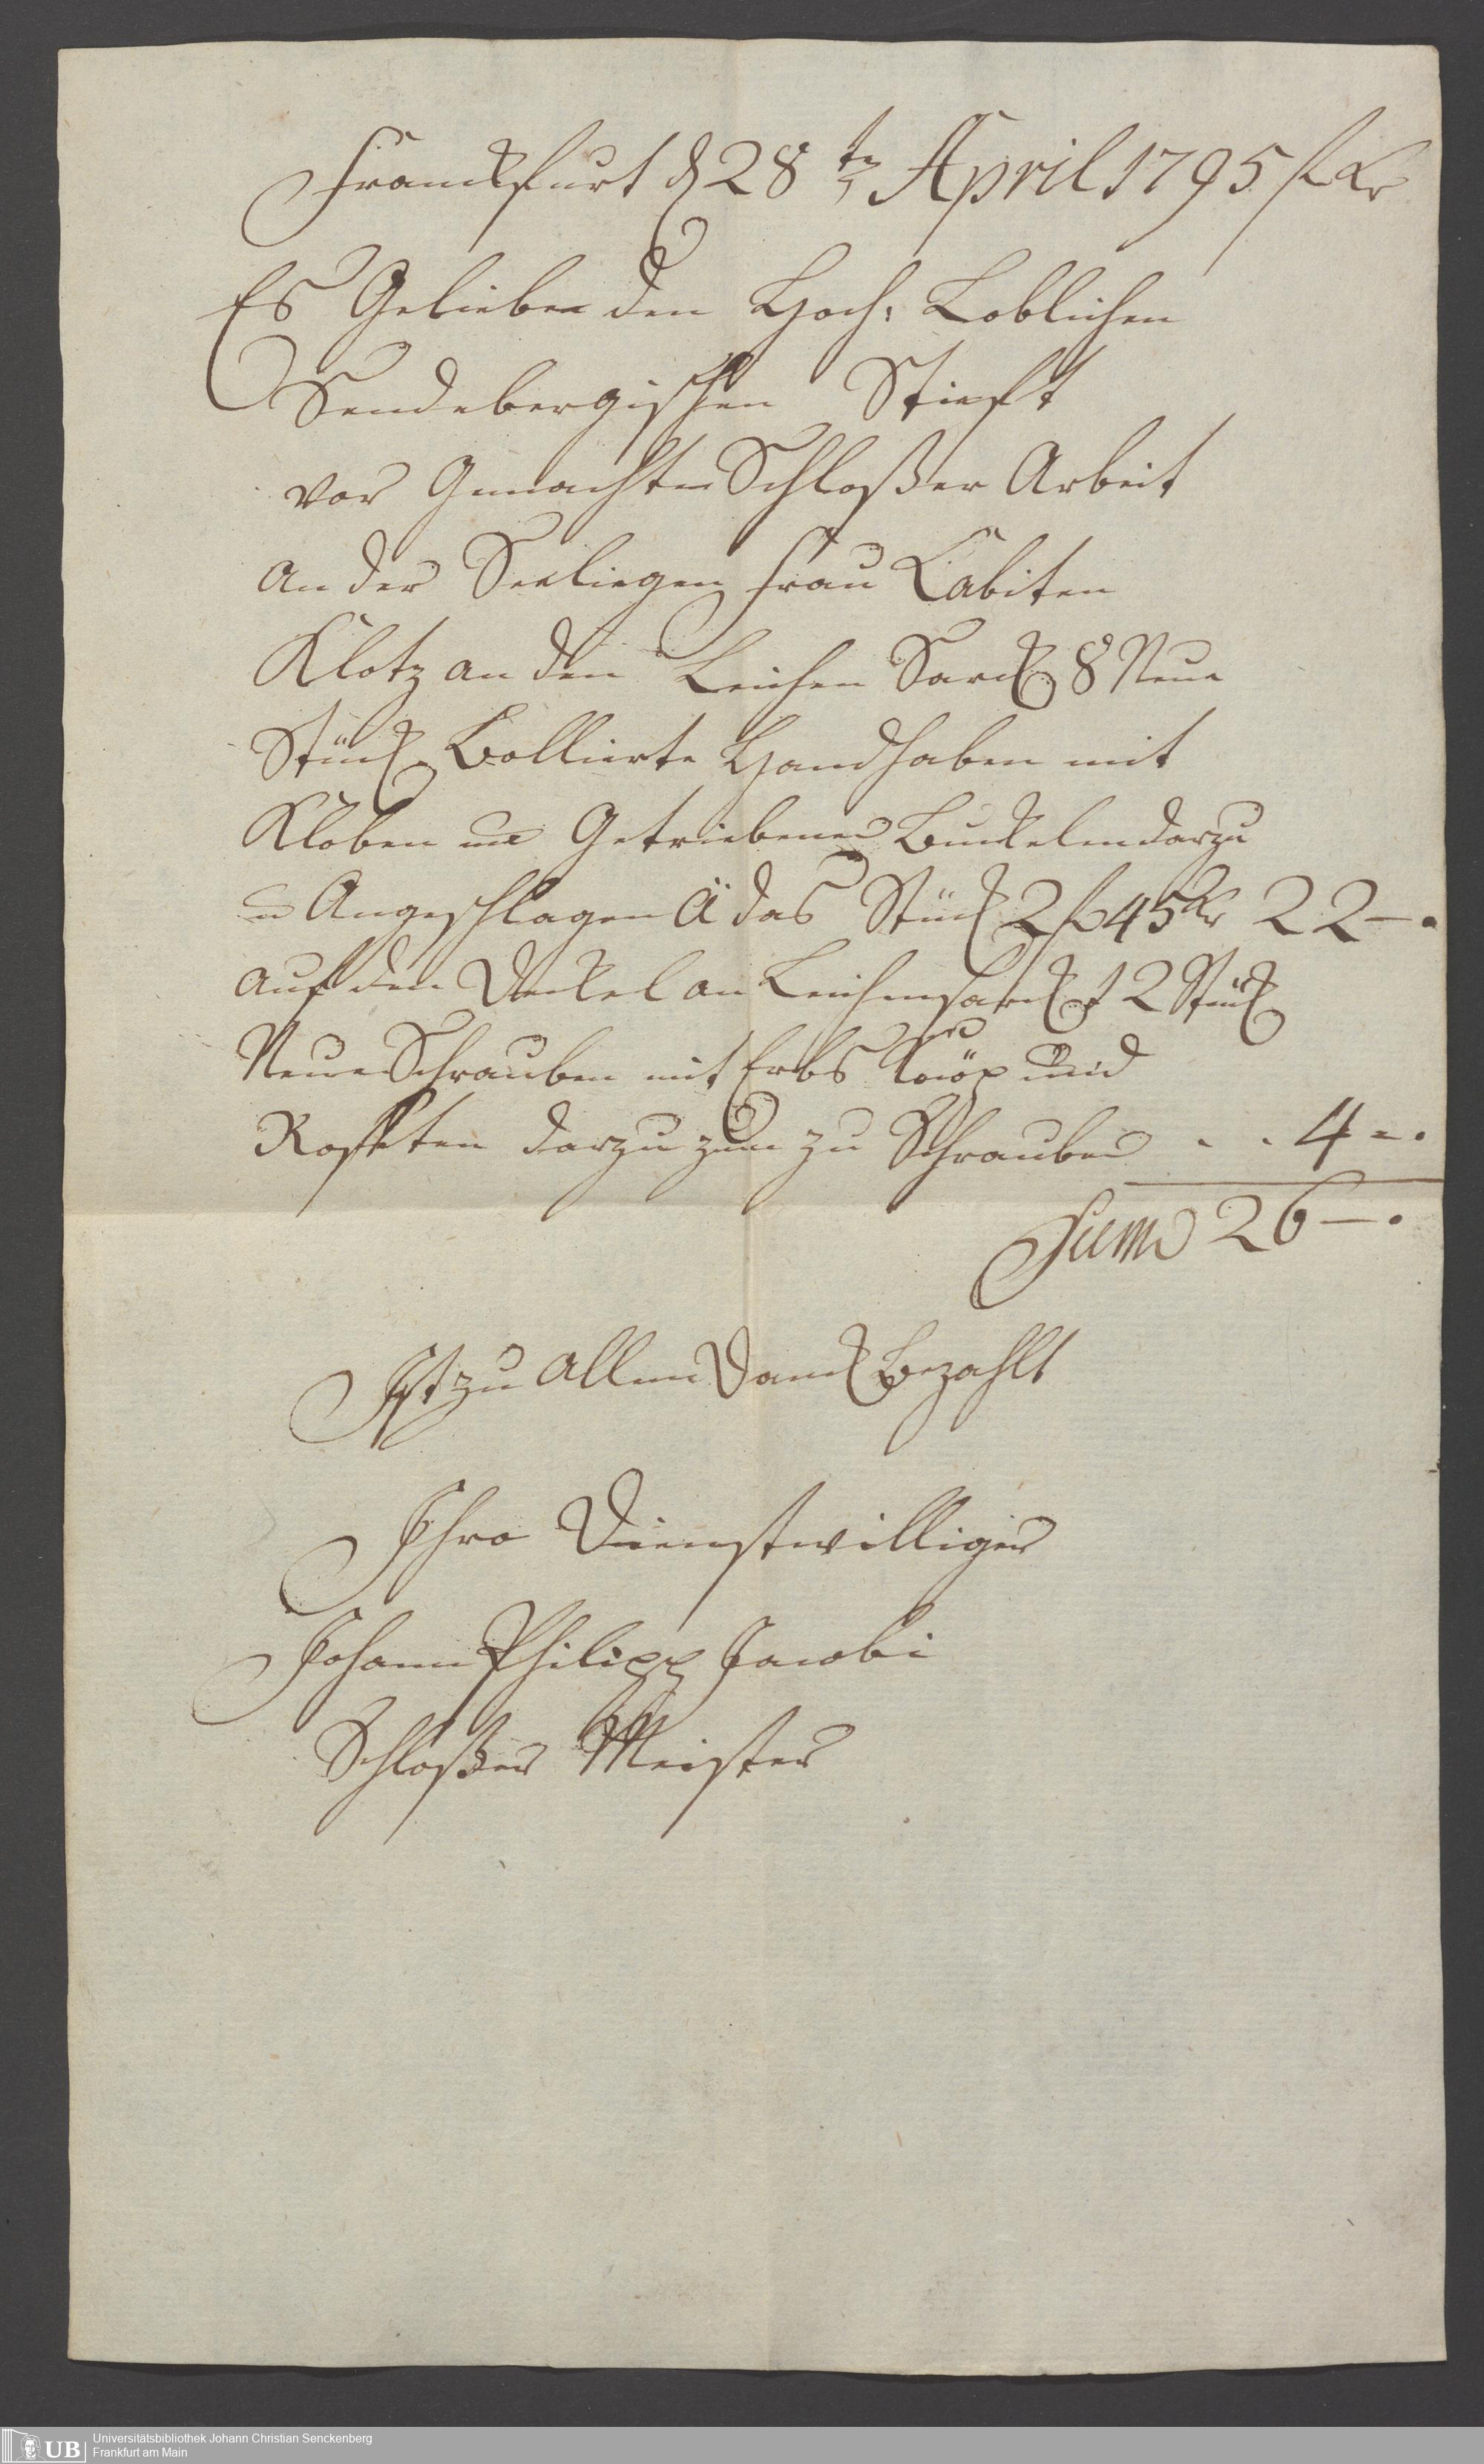 Franckfurt d 28 ten April 1795 f Kr
Es Belieben den Hoch: Loblichen
Sendebergischen Stieft
vor Gemachte Schloßer Arbeit
an der Seeligen frau Cabiten
Klotz an den Leichen Sarck 8 Neue
Stück Bollierte Handhaben mit
Kloben Getriebener Buckelen darzu
u Angeschlagen ä das Stück 2 f 45 Kr 22 —.
auf den Deckel an Leichensarck 12 Stück
Neue Schrauben mit Erbs und
Rosseten darzu zum zu Schrauben . . 4 =.
Sum 26 —.
Ist zu allem Danck Bezahlt
Ihro Dienstwilliger
Johann Philipp Jacobi
Schloßer Meister
UB
Universitätsbibliothek Johann Christian Senckenberg
Frankfurt am Main